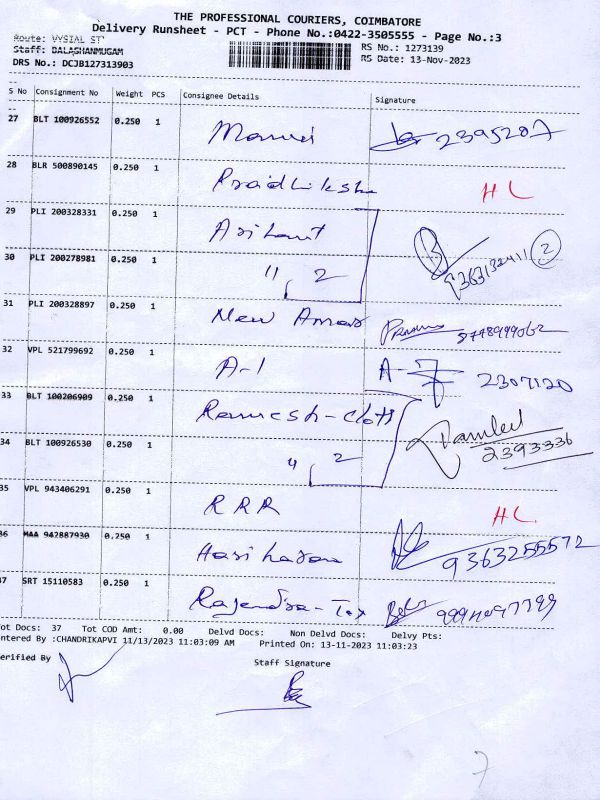 THE PROFESSIONAL COURIERS, COIMBATORE
Delivery Runsheet - PCT - Phone No.:0422-3505555 - Page No.:3
Route: VYSIAL ST RS No.: 1273139
Staff: BALASHANMUGAM RS Date: 13-Nov-2023
DRS No.: DCJB127313903
S No Consignment No Weight PCS Consignee Details Signature
27 BLT 100926552 0.250 1 2395207
28 BLR 500890145 0.250 1 Pradhiksha HL
29 PLI 200328331 0.250 1 Arihant
30 PLI 200278981 0.250 1 " 2 9363132411 2
31 PLI 200328897 0.250 1 New
32 VPL 521799692 0.250 1 A-1 A- 2307120
33 BLT 100206909 0.250 1 Ramesh-Cloth
34 BLT 100926530 0.250 1 " 2 2393336
35 VPL 943406291 0.250 1 RRR HL
36 MAA 942887930 0.250 1 Hariharan 9363255572
37 SRT 15110583 0.250 1 Rajendra-Tex
Tot Docs: 37 Tot COD Amt: 0.00 Delvd Docs: Non Delvd Docs: Delvy Pts:
Entered By :CHANDRIKAPVI 11/13/2023 11:03:09 AM Printed On: 13-11-2023 11:03:23
Verified By Staff Signature
7